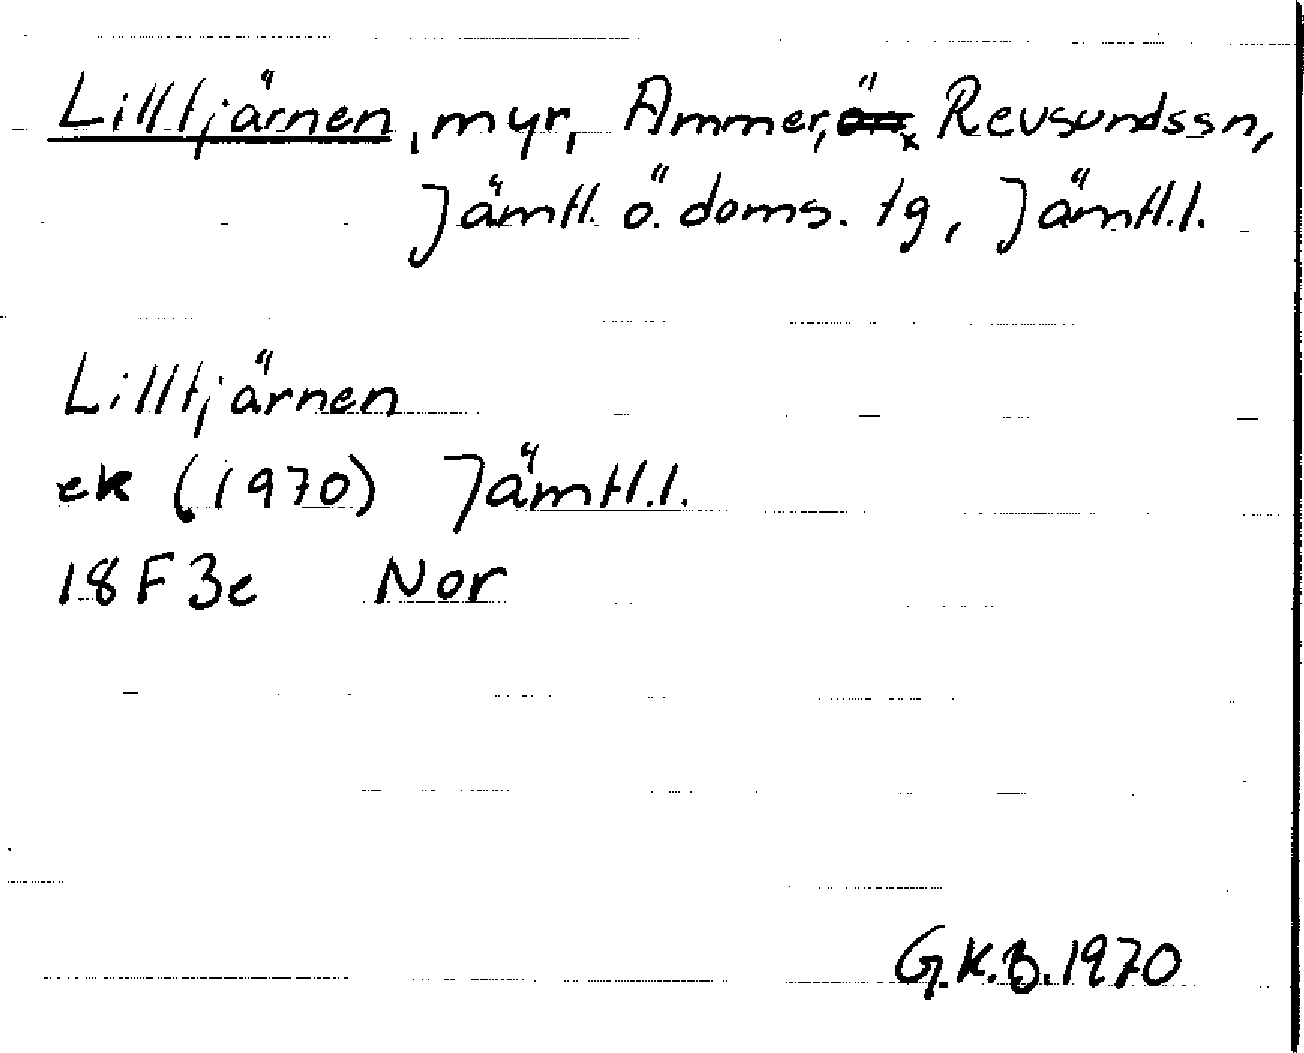 Lilltjärnen, myr, Ammer, Revsundssn,
Jämtl. ö. doms. tg, Jämtl.l.
Lilltjärnen
ek (1970) Jämtl.l.
18F3e Nor
G.K.B.1970